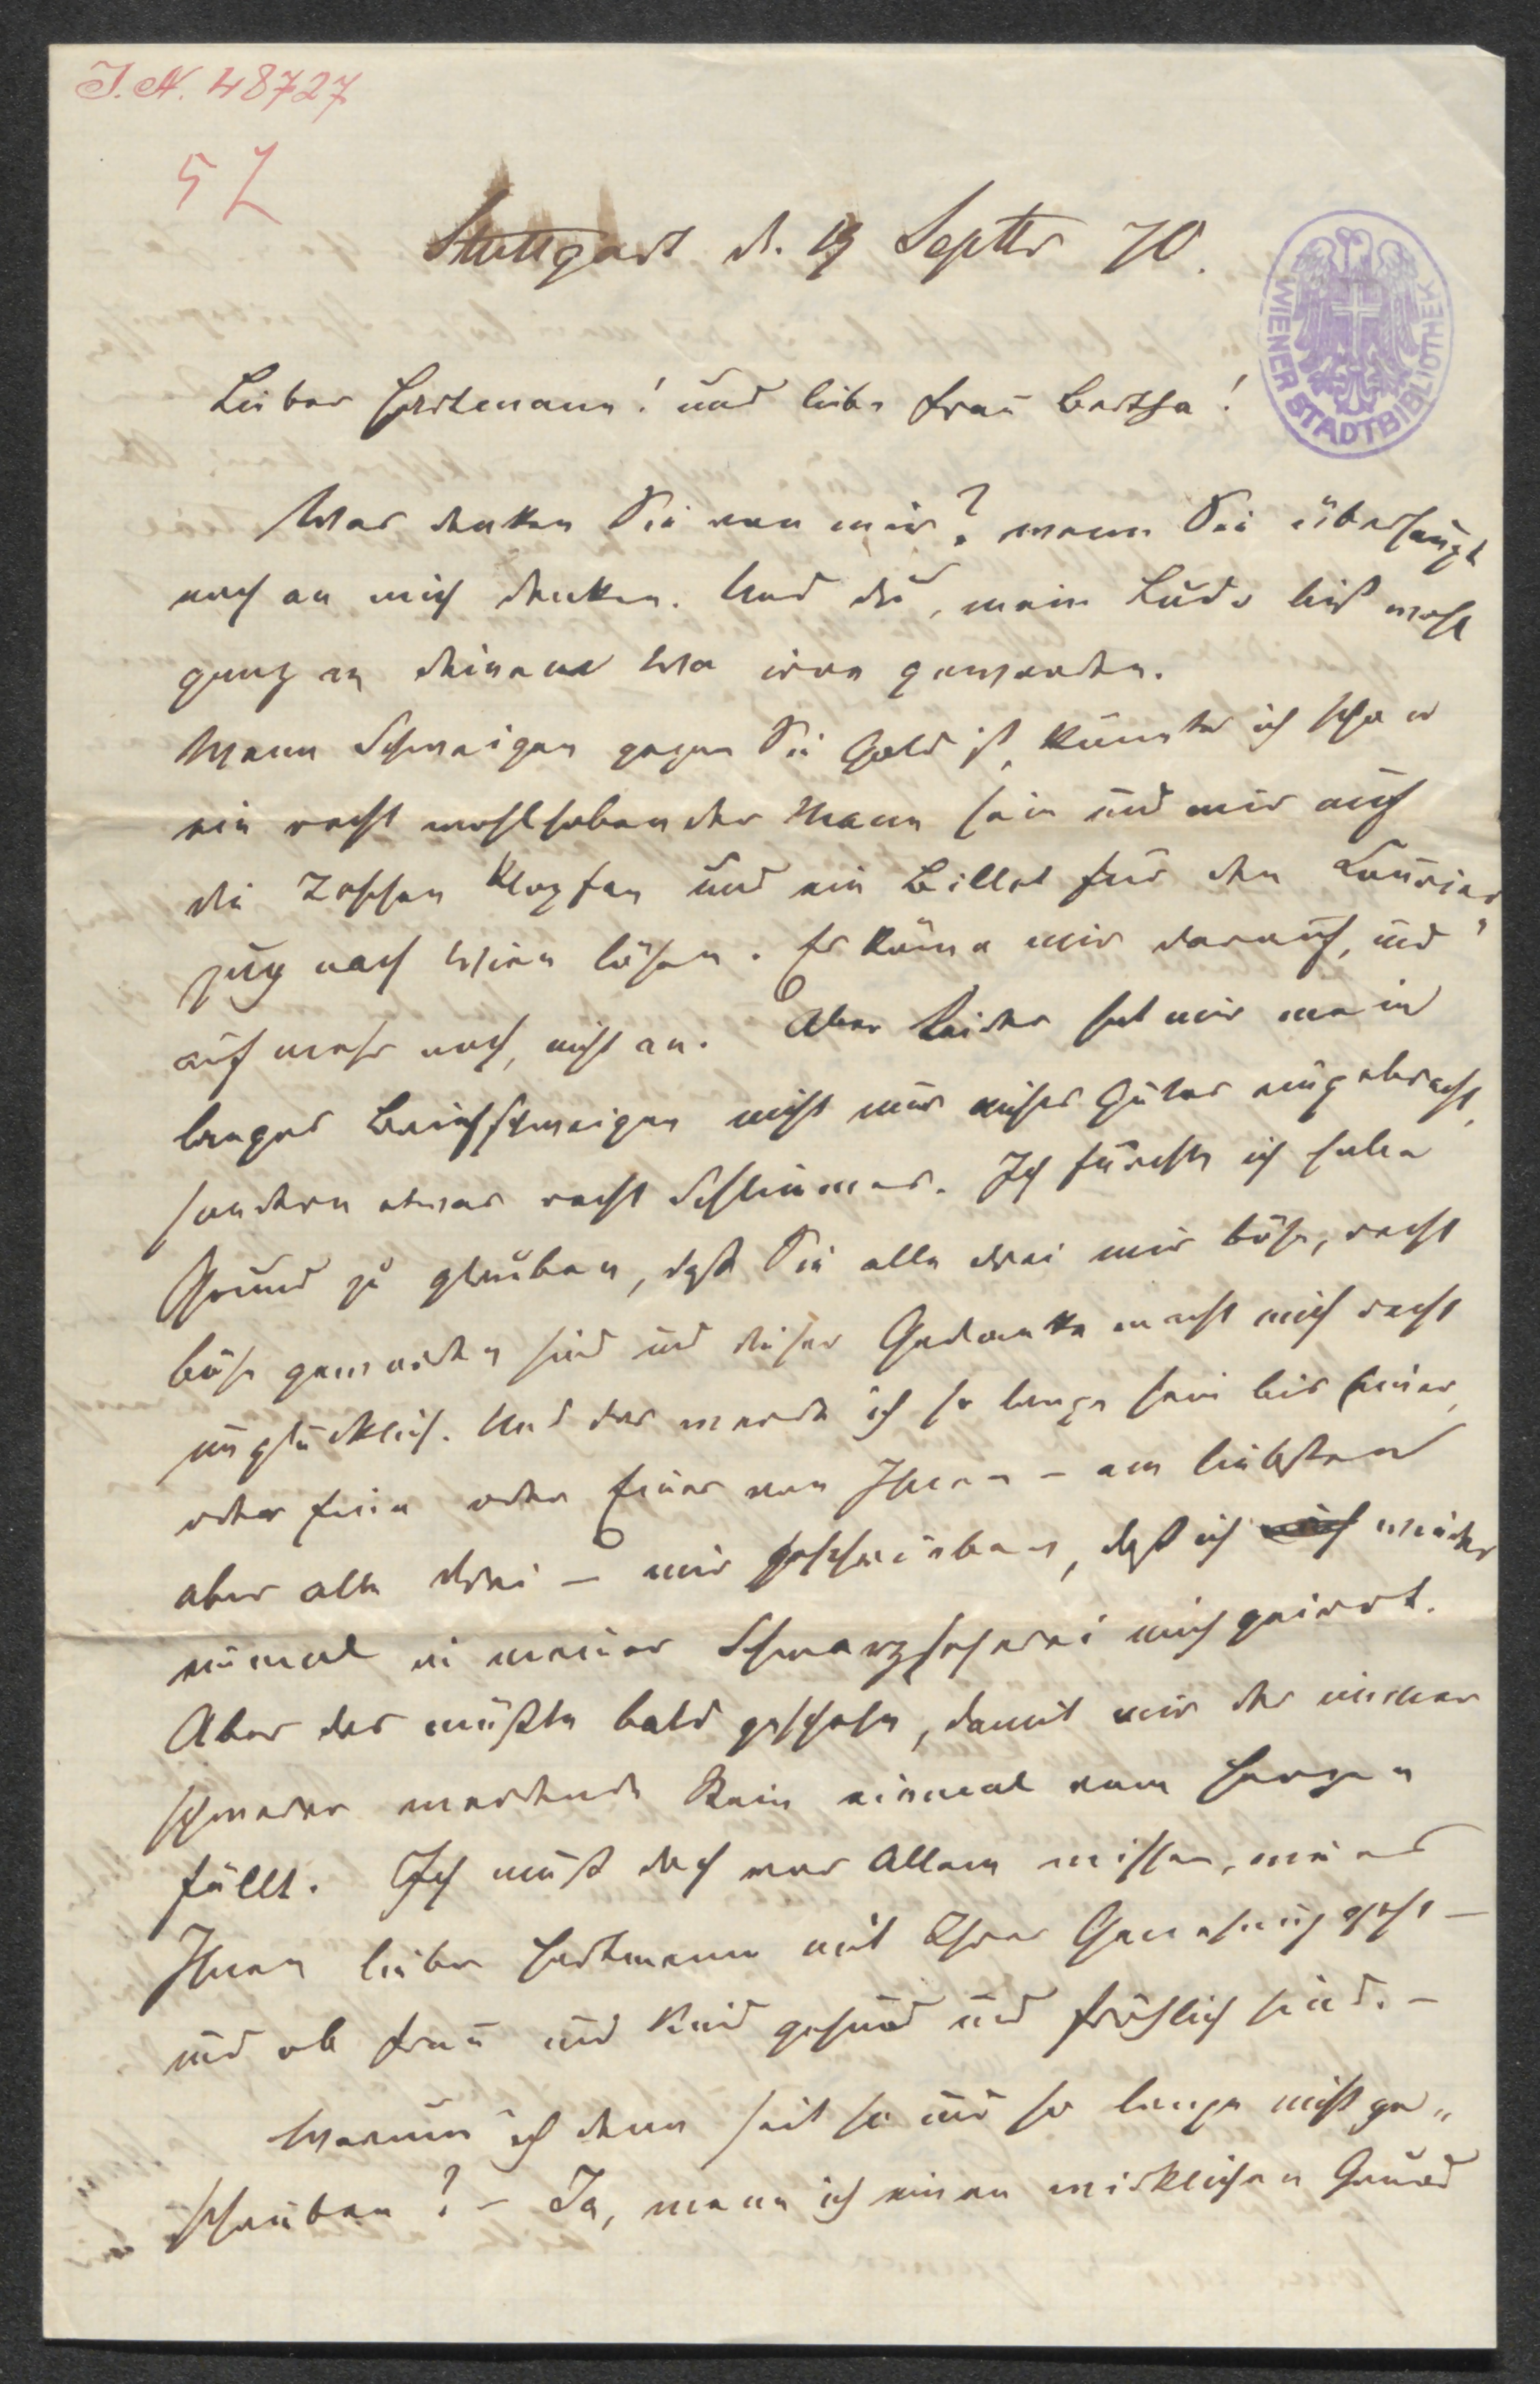 J. N. 48727
5 L
Stuttgart d. 19 Septbr 70.
WIENER STADTBIBLIOTHEK
Lieber Hartmann! und liebe Frau Bertha!
Was denken Sie von mir? wenn Sie überhaupt
noch an mich denken. Und du, mein Ludo bist wohl
ganz an deinem irre geworden.
Wenn Schweigen gegen Sie Gold ist, könnte ich schon
ein recht wohlhabender Mann sein und mir auf
die Taschen klopfen und ein Billet für den Courier„
zug nach Wien lösen. Es käme mir darauf, und
auf mehr noch, nicht an. Aber leider hat mir mein
langes Briefschweigen nicht nur nichts Gutes eingebracht,
sondern etwas recht Schlimmes. Ich fürchte ich habe
Grund zu glauben, daß Sie alle drei mir böse, recht
böse geworden sind und dieser Gedanke macht mich recht
unglücklich. Und das werde ich so lange sein bis Einer,
oder Eine oder Eines von Ihnen – am liebsten
aber alle drei – mir geschrieben, daß ich wieder
einmal in meiner Schwarzseherei mich geirrt.
Aber das müßte bald geschehen, damit mir der immer
schwerer werdende Stein einmal vom Herzen
fällt. Ich muß doch vor Allem wissen, wie es
Ihnen lieber Hartmann mit Ihrer Genesung geht –
und ob Frau und Kind gesund und fröhlich sind. –
Warum ich denn seit so und so lange nicht ge„
schrieben? – Ja, wenn ich einen wirklichen Grund